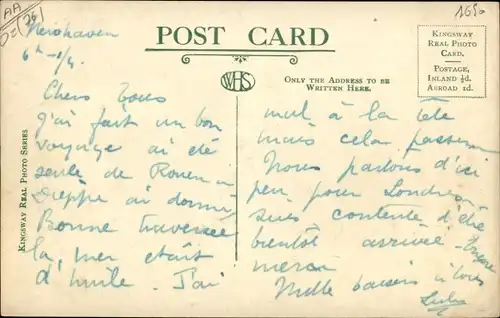 AA
(26)
1650
POST CARD
KINGSWAY
REAL PHOTO
CARD.
POSTAGE,
INLAND ½d.
ABROAD 1d.
WHS
ONLY THE ADDRESS TO BE
WRITTEN HERE.
KINGSWAY REAL PHOTO SERIES
Newhaven
6h
Chers Tous
J'ai fait un bon
voyage ai été
seule de Rouen à
Dieppe ai dormi
Bonne traversée
la mer était
d'huile. J'ai
mal à la tête
mais cela passera
Nous partons d'ici
peu pour Londres
suis contente d'être
bientôt arrivée. Encore
merci
Mille baisers à tous